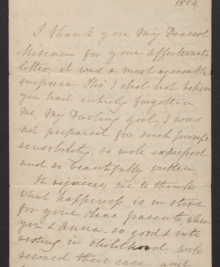 I thank you my Dearest
Miriam for your affectionate
letter, it was a most agreeable
surprise. Tho' I did not believe
you had entirely forgotten
me, My Darling girl, I was
not prepared for such
sensibility, so well expressed
and so beautifully written
It rejoices me to think
what happiness is in store
for your dear parents when
you & Anna. so good &
resting in childhood will
reward their care and